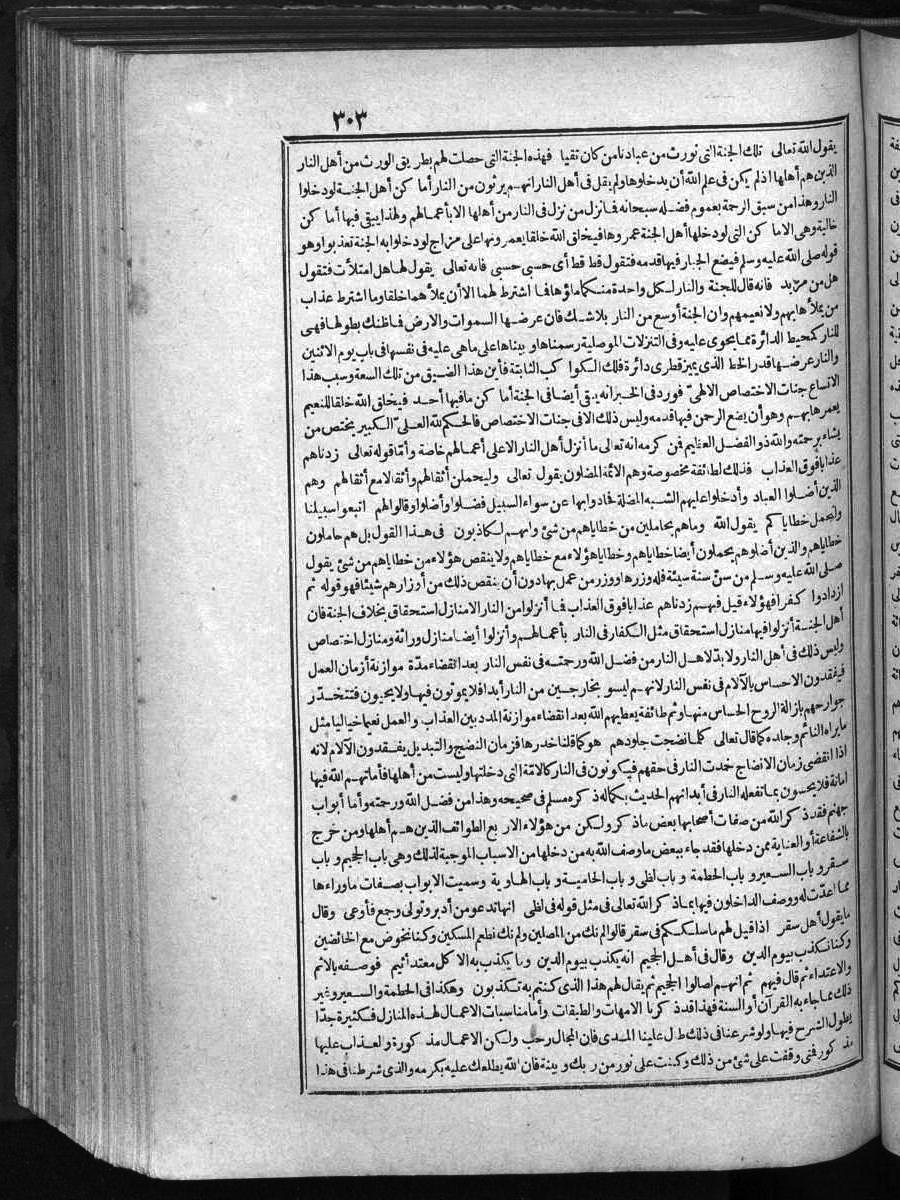 ٣٠٣
يقول الله تعالى تلك الجنة التى نورث من عبادنا من كان تقيا فهذه الجنة التى حصلت لهم بطريق الورث من أهل النار
الذين هم أهلها اذ لم يكن فى علم الله أن يدخلوها ولم يقل فى أهل النار انهم يرثون من النار أما كن أهل الجنة لو دخلوا
النار وهذا من سبق الرحمة بعموم فضله سبحانه فما نزل من نزل فى النار من أهلها الا بأعمالهم ولهذا يبقى فيها أما كن
خالية وهى الاما كن التى لو دخلها أهل الجنة عمروها فيخلق الله خلقا يعمرونها على مزاج لو دخلوا به الجنة تعذبوا وهو
قوله صلى الله عليه وسلم فيضع الجبار فيها قدمه فتقول قط قط أى حسبى حسبى فانه تعالى يقول لها هل امتلأت فتقول
هل من مزيد فانه قال للجنة والنار لكل واحدة منكما ملؤها فما اشترط لهما الا أن يملأهما خلقا وما اشترط عذاب
من يملأها بهم ولا نعيمهم وان الجنة أوسع من النار بلا شك فان عرضها السموات والارض فما ظنك بطولها فهى
للنار كمحيط الدائرة مما يحوى عليه وفى التنزلات الموصلية رسمناها وبيناها على ماهى عليه فى نفسها فى باب يوم الاثنين
والنار عرضها قدر الخط الذى يميز قطرى دائرة فلك الكوا كب الثابتة فأين هذا الضيق من تلك السعة وسبب هذا
الاتساع جنات الاختصاص الالهىّ فورد فى الخبر انه يبقى أيضا فى الجنة أما كن مافيها أحد فيخلق الله خلقا للنعيم
يعمرها بهم وهو أن يضع الرحمن فيها قدمه وليس ذلك الا فى جنات الاختصاص فالحكم لله العلىّ الكبير يختص من
يشاء برحمته والله ذو الفضل العظيم فمن كرمه انه تعالى ما أنزل أهل النار الا على أعمالهم خاصة وأمّا قوله تعالى زدناهم
عذابا فوق العذاب فذلك لطائفة مخصوصة وهم الائمة المضلون يقول تعالى وليحملن أثقالهم وأثقالا مع أثقالهم وهم
الذين أضلوا العباد وأدخلوا عليهم الشبه المضلة فحادوا بها عن سواء السبيل فضلوا وأضلوا وقالوا لهم اتبعوا سبيلنا
ولنحمل خطايا كم يقول الله وماهم بحاملين من خطاياهم من شئ وانهم لكاذبون فى هذا القول بل هم حاملون
خطاياهم والذين أضلوهم يحملون أيضا خطاياهم وخطايا هؤلاء مع خطاياهم ولا ينقص هؤلاء من خطاياهم من شئ يقول
صلى الله عليه وسلم من سنّ سنة سيئة فله وزرها ووزر من عمل بها دون أن ينقص ذلك من أوزارهم شيئا فهو قوله ثم
ازدادوا كفرا فهؤلاء قيل فيهم زدناهم عذابا فوق العذاب فما أنزلوا من النار الا منازل استحقاق بخلاف الجنة فان
أهل الجنة أنزلوا فيها منازل استحقاق مثل الكفار فى النار بأعمالهم وأنزلوا أيضا منازل وراثة ومنازل اختصاص
وليس ذلك فى أهل النار ولا بدّ لاهل النار من فضل الله ورحمته فى نفس النار بعد انقضاء مدّة موازنة أزمان العمل
فيفقدون الاحساس بالآلام فى نفس النار لانهم ليسو بخارجين من النار أبدا فلا يموتون فيها ولا يحيون فتتخدّر
جوارحهم بازالة الروح الحساس منها وثم طائفة يعطيهم الله بعد انقضاء موازنة المدد بين العذاب والعمل نعيما خياليا مثل
مايراه النائم وجلده كما قال تعالى كلما نضجت جلودهم هو كما قلنا خدرها فزمان النضج والتبديل يفقدون الآلام لانه
اذا انقضى زمان الانضاج خمدت النار فى حقهم فيكونون فى النار كالامّة التى دخلتها وليست من أهلها فأماتهم الله فيها
اماتة فلا يحسون بما تفعله النار فى أبدانهم الحديث بكماله ذ كره مسلم فى صحيحه وهذا من فضل الله ورحمته وأما أبواب
جهنم فقد ذ كر الله من صفات أصحابها بعض ماذ كر ولكن من هؤلاء الاربع الطوائف الذين هم أهلها ومن خرج
بالشفاعة أو العناية ممن دخلها فقد جاء ببعض ما وصف الله به من دخلها من الاسباب الموجبة لذلك وهى باب الجحيم وباب
سقر وباب السعير وباب الحطمة وباب لظى وباب الحامية وباب الهاوية وسميت الابواب بصفات ماوراءها
مما اعدّت له ووصف الداخلون فيها بما ذ كر الله تعالى فى مثل قوله فى لظى انها تدعو من أدبر وتولى وجمع فأوعى وقال
مايقول أهل سقر اذا قيل لهم ما سلككم فى سقر قالوا لم نك من المصلين ولم نك نطعم المسكين وكنا نخوض مع الخائضين
وكنا نكذب بيوم الدين وقال فى أهل الجحيم انه يكذب بيوم الدين وما يكذب به الا كل معتد أثيم فوصفه بالاثم
والاعتداء ثم قال فيهم ثم انهم لصالوا الجحيم ثم يقال لهم هذا الذى كنتم به تكذبون وهكذا فى الحطمة والسعير وغير
ذلك مما جاء به القرآن أو السنة فهذا قد ذ كرنا الامهات والطبقات وأما مناسبات الاعمال لهذه المنازل فكثيرة جدّا
يطول الشرح فيها ولو شرعنا فى ذلك طال علينا المدى فان المجال رحب ولكن الاعمال مذ كورة والعذاب عليها
مذ كور فتى وقفت على شئ من ذلك وكنت على نور من ربك وبينة فان الله يطلعك عليه بكرمه والذى شرطنا فى هذا